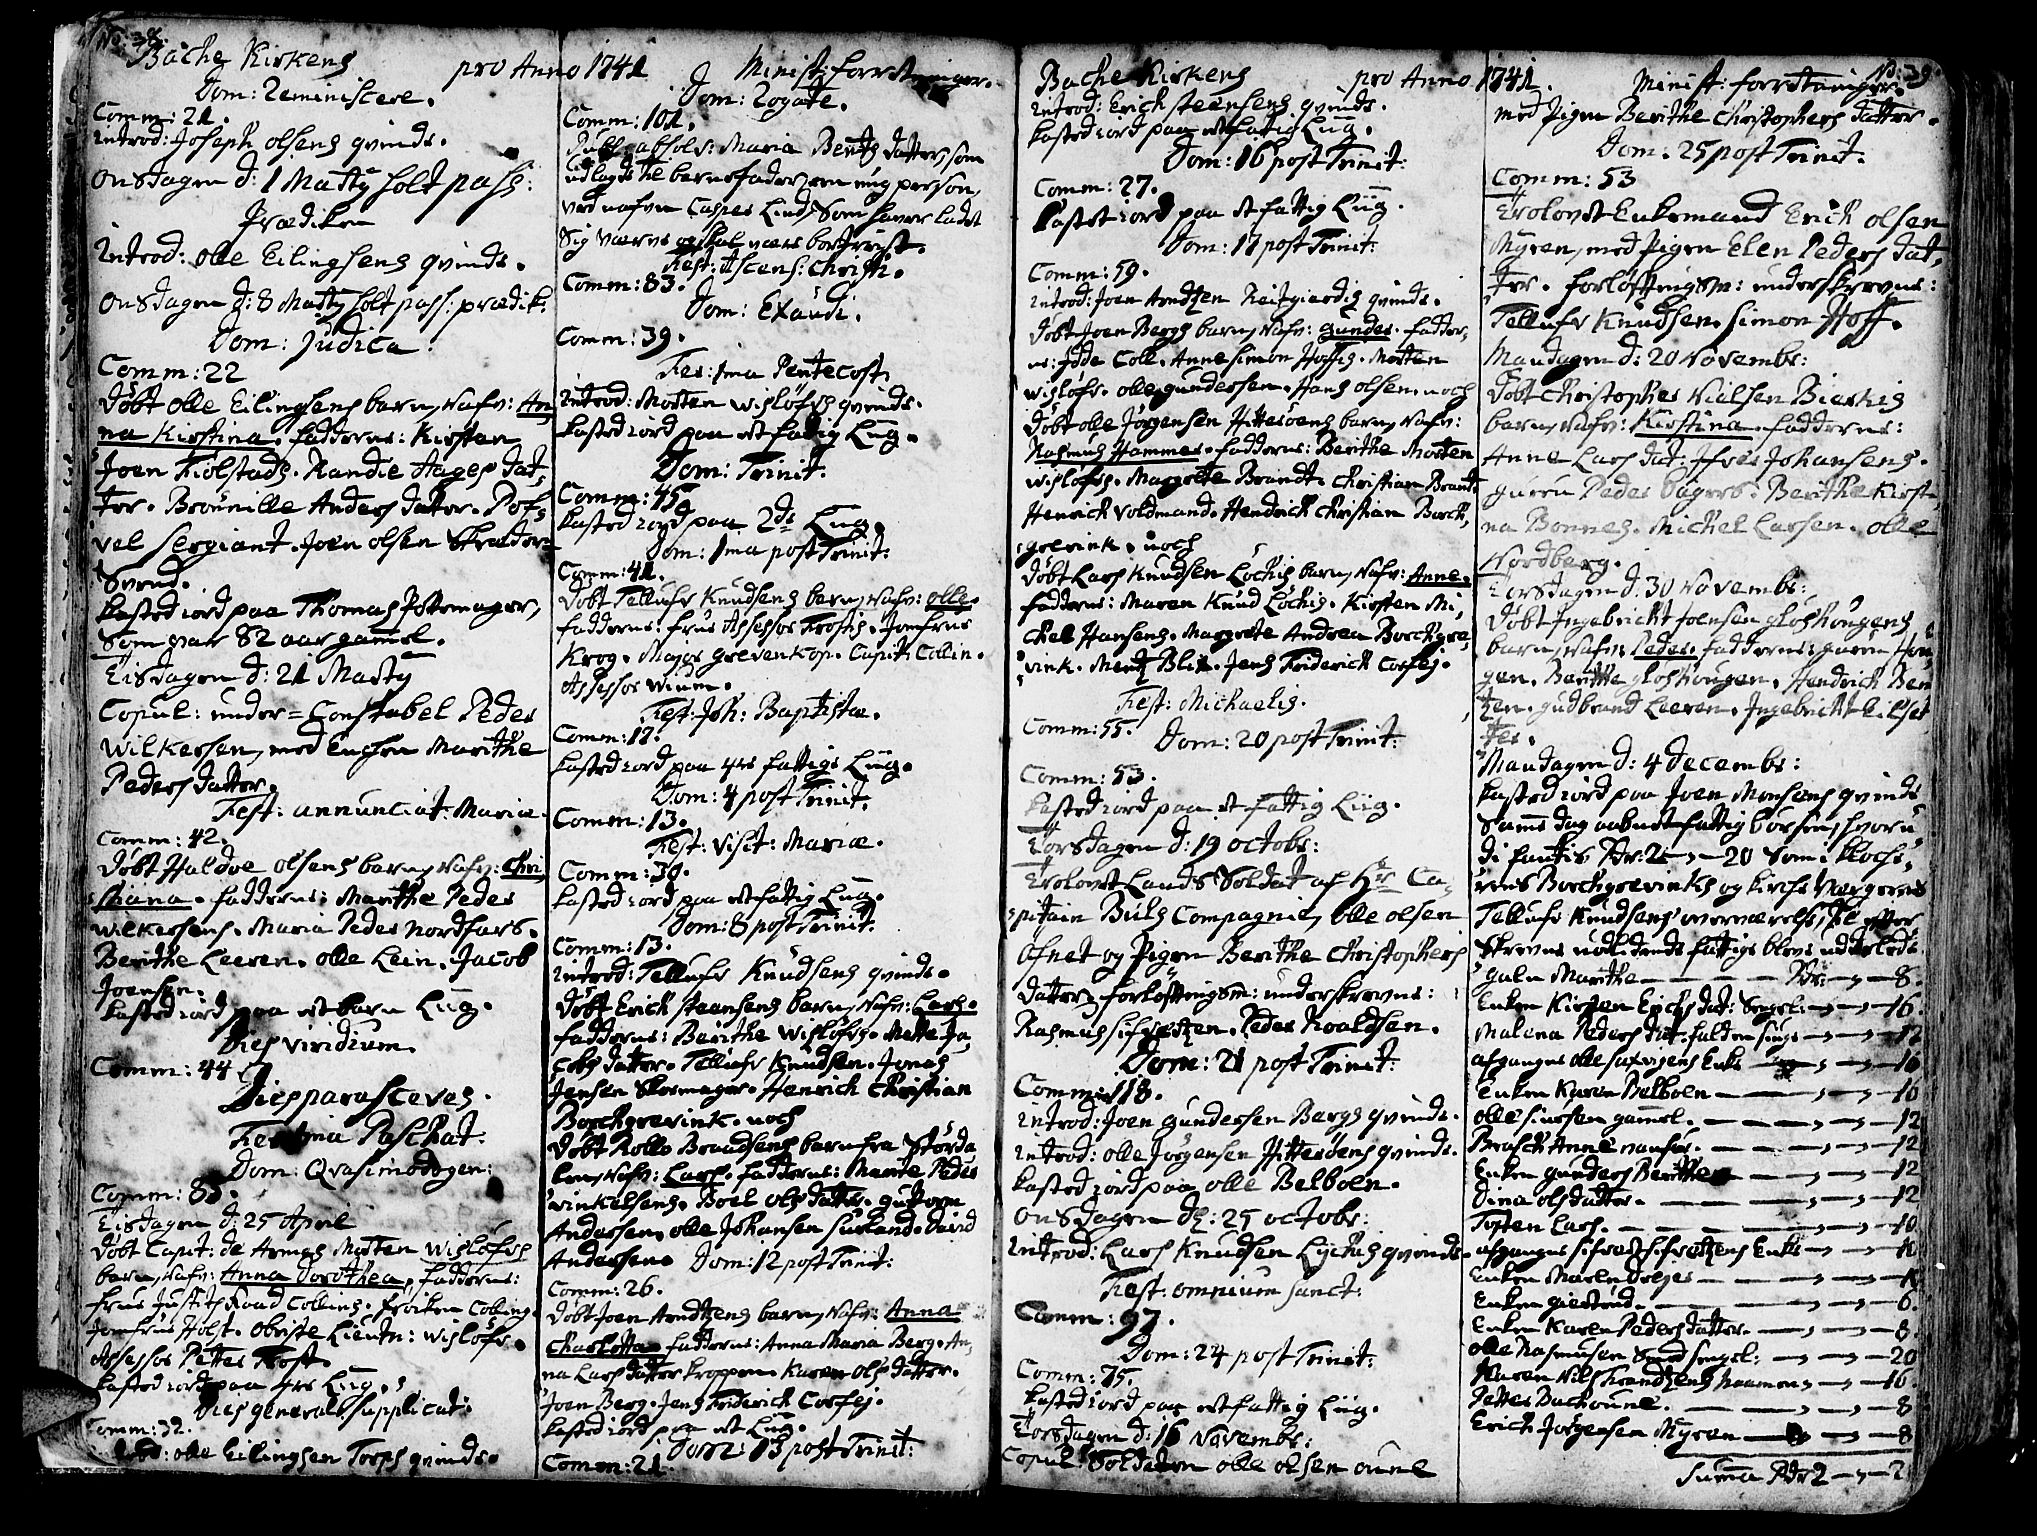 No: 38.
Bache Kirkens pro Anno 1741 Minist: forretninger.
Dom: Reminiscere.
Comm: 21.
Introd: Joseph olsens qvinde.
onsdagen d: 1 Marty holt pass:
Prædiken
Introd: olle Eilingsens qvinde.
onsdagen d: 8 Marty holt pass: prædik:
Dom: Judica.
Comm: 22
Døbt olle Eilingsens barn, nafv: An,
na Kirstina. fadderne: Kirsten
Joen Fiolstads. Randie Aages dat,
ter. Brønnille Anders datter. Pofs
vel sergiant. Joen olsen Skræder-
Svend.
Kasted iord paa Thomas Pottemager,
Som var 82 aar gammel.
Tisdagen d: 21 Marty
Copul: under=Constabel Peder
Wilkessen, med Enchen Marithe
Peders datter.
Fest: annunciat: Mariæ.
Comm: 42.
Døbt Haldoe olsens barn, nafv: Chri,
stiana. fadderne: Marithe Peder
Wilkessens. Maria Peder Nordfars.
Berithe Leeren. olle Lein. Jacob
Joensen.
Kasted iord paa et barn Liig.
Dies viridium.
Comm: 44
Dies parasceves.
Fest: 1ma Paschat:
Dom: Qvasimodogen:
Comm: 83.
Tisdagen d: 25 April
Døbt Capit: de Armes Morten Wisløfs
barn, nafv: Anna Dorothea, fadderne:
frue Justitz Raad Collins. frøiken Colling.
Jomfrue Holst. obriste Lieutn: Wisløfs.
Assessor Petter Frost.
Kasted iord paa 4re Liig.
Dies general: supplicat:
Comm: 32.
Introd: olle Eilingsen Torps qvinde.
Dom: Rogate.
Comm: 101.
Publ: absolv: Maria Bentz datter, som
udlagde til barnefader, en ung person,
ved nafvn Casper Lind, Som haver ladet
Sig værve og skal være bortreist.
Fest: Ascens: Christi.
Comm: 83.
Dom: Exaudi.
Comm: 39.
Fes: 1ma Pentecost,
Introd: Morten Wisløfs qvinde.
Kasted iord paa et fattig Liig.
Dom: Trinit:
Comm: 45.
Kasted iord paa 2de Liig.
Dom: 1ma post Trinit:
Comm: 41.
Døbt Tellufv Knudsens barn, nafv: olle.
fadderne: frue Assessor Frostes. Jomfrue
Krog. Major Grevenkop. Capit: Collin.
Assessor Winne.
Fest: Joh: Baptistæ.
Comm: 17.
Kasted iord paa 4re fattige Liig.
Dom: 4 post Trinit.
Comm: 13.
Fest: Visit: Mariæ.
Comm: 39.
Kasted iord paa et fattig Liig.
Dom: 8 post Trinit.
Comm: 13.
Introd: Tellufv Knudsens qvinde.
Døbt Erick Steensens barn, nafv: Lars.
fadderne: Berithe Wisløfs. Mette Ja,
cobs datter. Tellufv Knudsen. Jonas
Jensen Skoemager. Henrich Christian
Borchgrevink. noch
Døbt Rollo Brandsens barn fra Størda,
len, nafv: Lars. fadderne: Marite Peder
Vinkelsens. Boel ols datter. Guttorm
Andersen. olle Johansen Surland. David
Andersen. Dom: 12 post Trinit:
Comm: 26.
Døbt Joen Arndtzens barn, nafv: Anna
Charlotta fadderne: Anna Maria Berg. An,
na Lars datter Kroppen. Karen ols datter.
Joen Berg. Jens Friderich Corfej.
Kasted iord paa et Liig.
Dom: 13 post Trinit:
Comm: 21.
No: 39.
Bache Kirkens pro Anno 1741. Minist: forretninger.
Introd: Erick Steensens qvinde.
Kasted iord paa et fattig Liig.
Dom: 16 post Trinit:
Comm: 27.
Kastet iord paa et fattig Liig.
Dom: 17 post Trinit:
Comm: 59.
Introd: Joen Arndtzen Reitgierdes qvinde.
Døbt Joen Bergs barn, nafv: Gunder. fadder,
ne: Jøde Coll. Anne Simon Hoffs. Morten
Wisløfs. olle Gundersen. Hans olsen. noch
Døbt olle Jørgensen Hitterøens barn, nafv:
Rasmus Hammer. fadderne: Berithe Morten
Wisløfs. Margrete Brandt. Christian Brandt.
Henrich Voldmand. Hendrich Christian Borch,
grevink. noch
Døbt Lars Knudsen Løches barn, nafv: Anne.
fadderne: Maren Knud Løches. Kirsten Mi,
chel Hansens. Margrete Andrea Borchgre,
vink. Mentz Blix. Jens Friderich Corfej.
Fest: Michaelis.
Comm: 55.
Dom: 20 post Trinit:
Comm: 53.
Kasted iord paa et fattig Liig.
Torsdagen d: 19 octobr:
Trolovet Lands Soldat af Hr Ca,
pitain Buls Compagnie, olle olsen
Ofnet og Pigen Berithe Christophers
datter, forløftningsm: underskrevne:
Rasmus Peder Roaldsen.
Dom: 21 post Trinit:
Comm: 118.
Introd: Joen Gundersen Bergs qvinde.
Introd: olle Jørgensen Hitterøens qvinde.
Kasted iord paa olle Belboen.
onsdagen d: 25 octobr:
Introd: Lars Knudsen Lyches qvinde.
Fest: omnium Sanct:
Comm: 97.
Dom: 24 post Trinit:
Comm: 75.
Kasted iord paa et fattig Liig.
Torsdagen d: 16 Novembr:
Copul: Soldaten olle olsen oune
med Pigen Berithe Christophers datter.
Dom: 25 post Trinit.
Comm: 53
Trolovet Enkemand Erich olsen
Myren, med Pigen Elen Peders dat,
ter. forløftningsm: underskrevne:
Tellufv Knudsen. Simon Hoff.
Mandagen d: 20 Novembr:
Døbt Christopher Nielsen Bierkes
barn, nafv: Kirstina fadderne:
Anne Lars dat: Ifver Johansens.
Guren Peder Bagers. Berithe Kirsti,
na Bonnes. Michel Larsen. olle
Nordberg.
Torsdagen d: 30 Novembr:
Døbt Ingebricht Joensen Gloshougens
barn, nafv: Peder. fadderne: Guren Hou,
gen. Berithe Gloshougen. Hendrich Ben
tzen. Gudbrand Leeren. Ingebricht Eilser
ter.
Mandagen d: 4 Decembr:
Kasted iord paa Joen Monsens qvinde
Samme dag aabnet fattig børsen, hvoru,
di fantis Rdr: 2 - , - 20 Som i Klocke,
rens Borchgrevinks og Kirke Vergerens
Tellufv Knudsens overværelse, til efter
skrevne nødlidende fattige blev uddeelede.
Galn Marithe — — — Rdr: - , - 8.
Enken Kirsten Erichs dat: Sengel: - , - 16.
Malena Peders dat: falden siuge - , - 12
afgangne olle Enke - , - 16
Enken Karen Belboen — — , - 16
olle Siursen gammel. — — , - 12
Brasch Anne vanfør. — — , - 12
Enken Gunders Berithe — — , - 12
Dina ols datter. — — , - 12
Torsten Lars. — — , - 10
afgangne Enke - , - 10
Enken Maren Dreiers — — , -
Enken Giertrud. — — , - 6.
Enken Karen Peders datter. — , - 8.
olle Rasmussen Smed sengel: - , - 20
Maren Nils , - 16
Petter Bachoune. — — , - 8
Erich Jørgensen Myren — , - 8
Summa Rdr 2 - , - 2